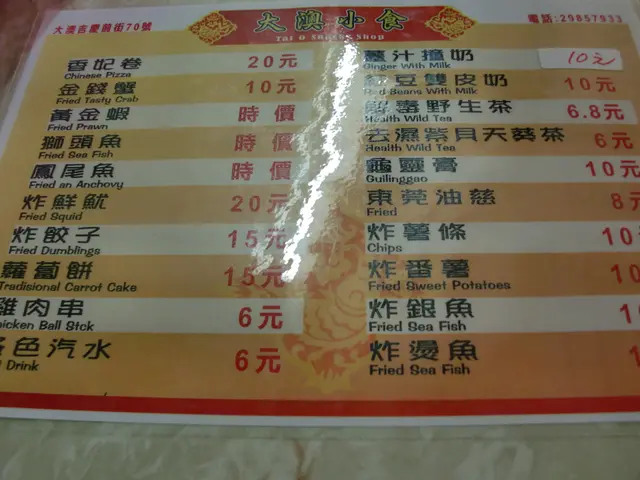 大澳吉慶前街70號
大澳小食
Tai O Snacks Shop
電話:29857933
香妃卷 20元
Chinese Pizza
金錢蟹 10元
Fried Tasty Crab
黃金蝦 時價
Fried Prawn
獅頭魚 時價
Fried Sea Fish
鳳尾魚 時價
Fried an Anchovy
炸鮮魷 20元
Fried Squid
炸餃子 15元
Fried Dumblings
蘿蔔餅 15元
Tradisional Carrot Cake
雞肉串 6元
hicken Ball Stck
色汽水 6元
Drink
薑汁撞奶 10元
Ginger With Milk
紅豆雙皮奶 10元
Red Beans With Milk
解毒野生茶 6.8元
Health Wild Tea
去濕紫貝天葵茶 6元
Health Wild Tea
龜靈膏 10元
Guilinggao
東莞油慈 8元
Fried
炸薯條 10
Chips
炸番薯 10
Fried Sweet Potatoes
炸銀魚
Fried Sea Fish
炸燙魚
Fried Sea Fish